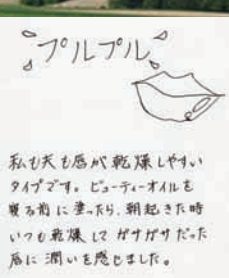 プルプル
私も夫も唇が乾燥しやすい
タイプです。ビューティーオイルを
寝る前に塗ったら、朝起きた時
いつも乾燥してガサガサだった
唇に潤いを感じました。